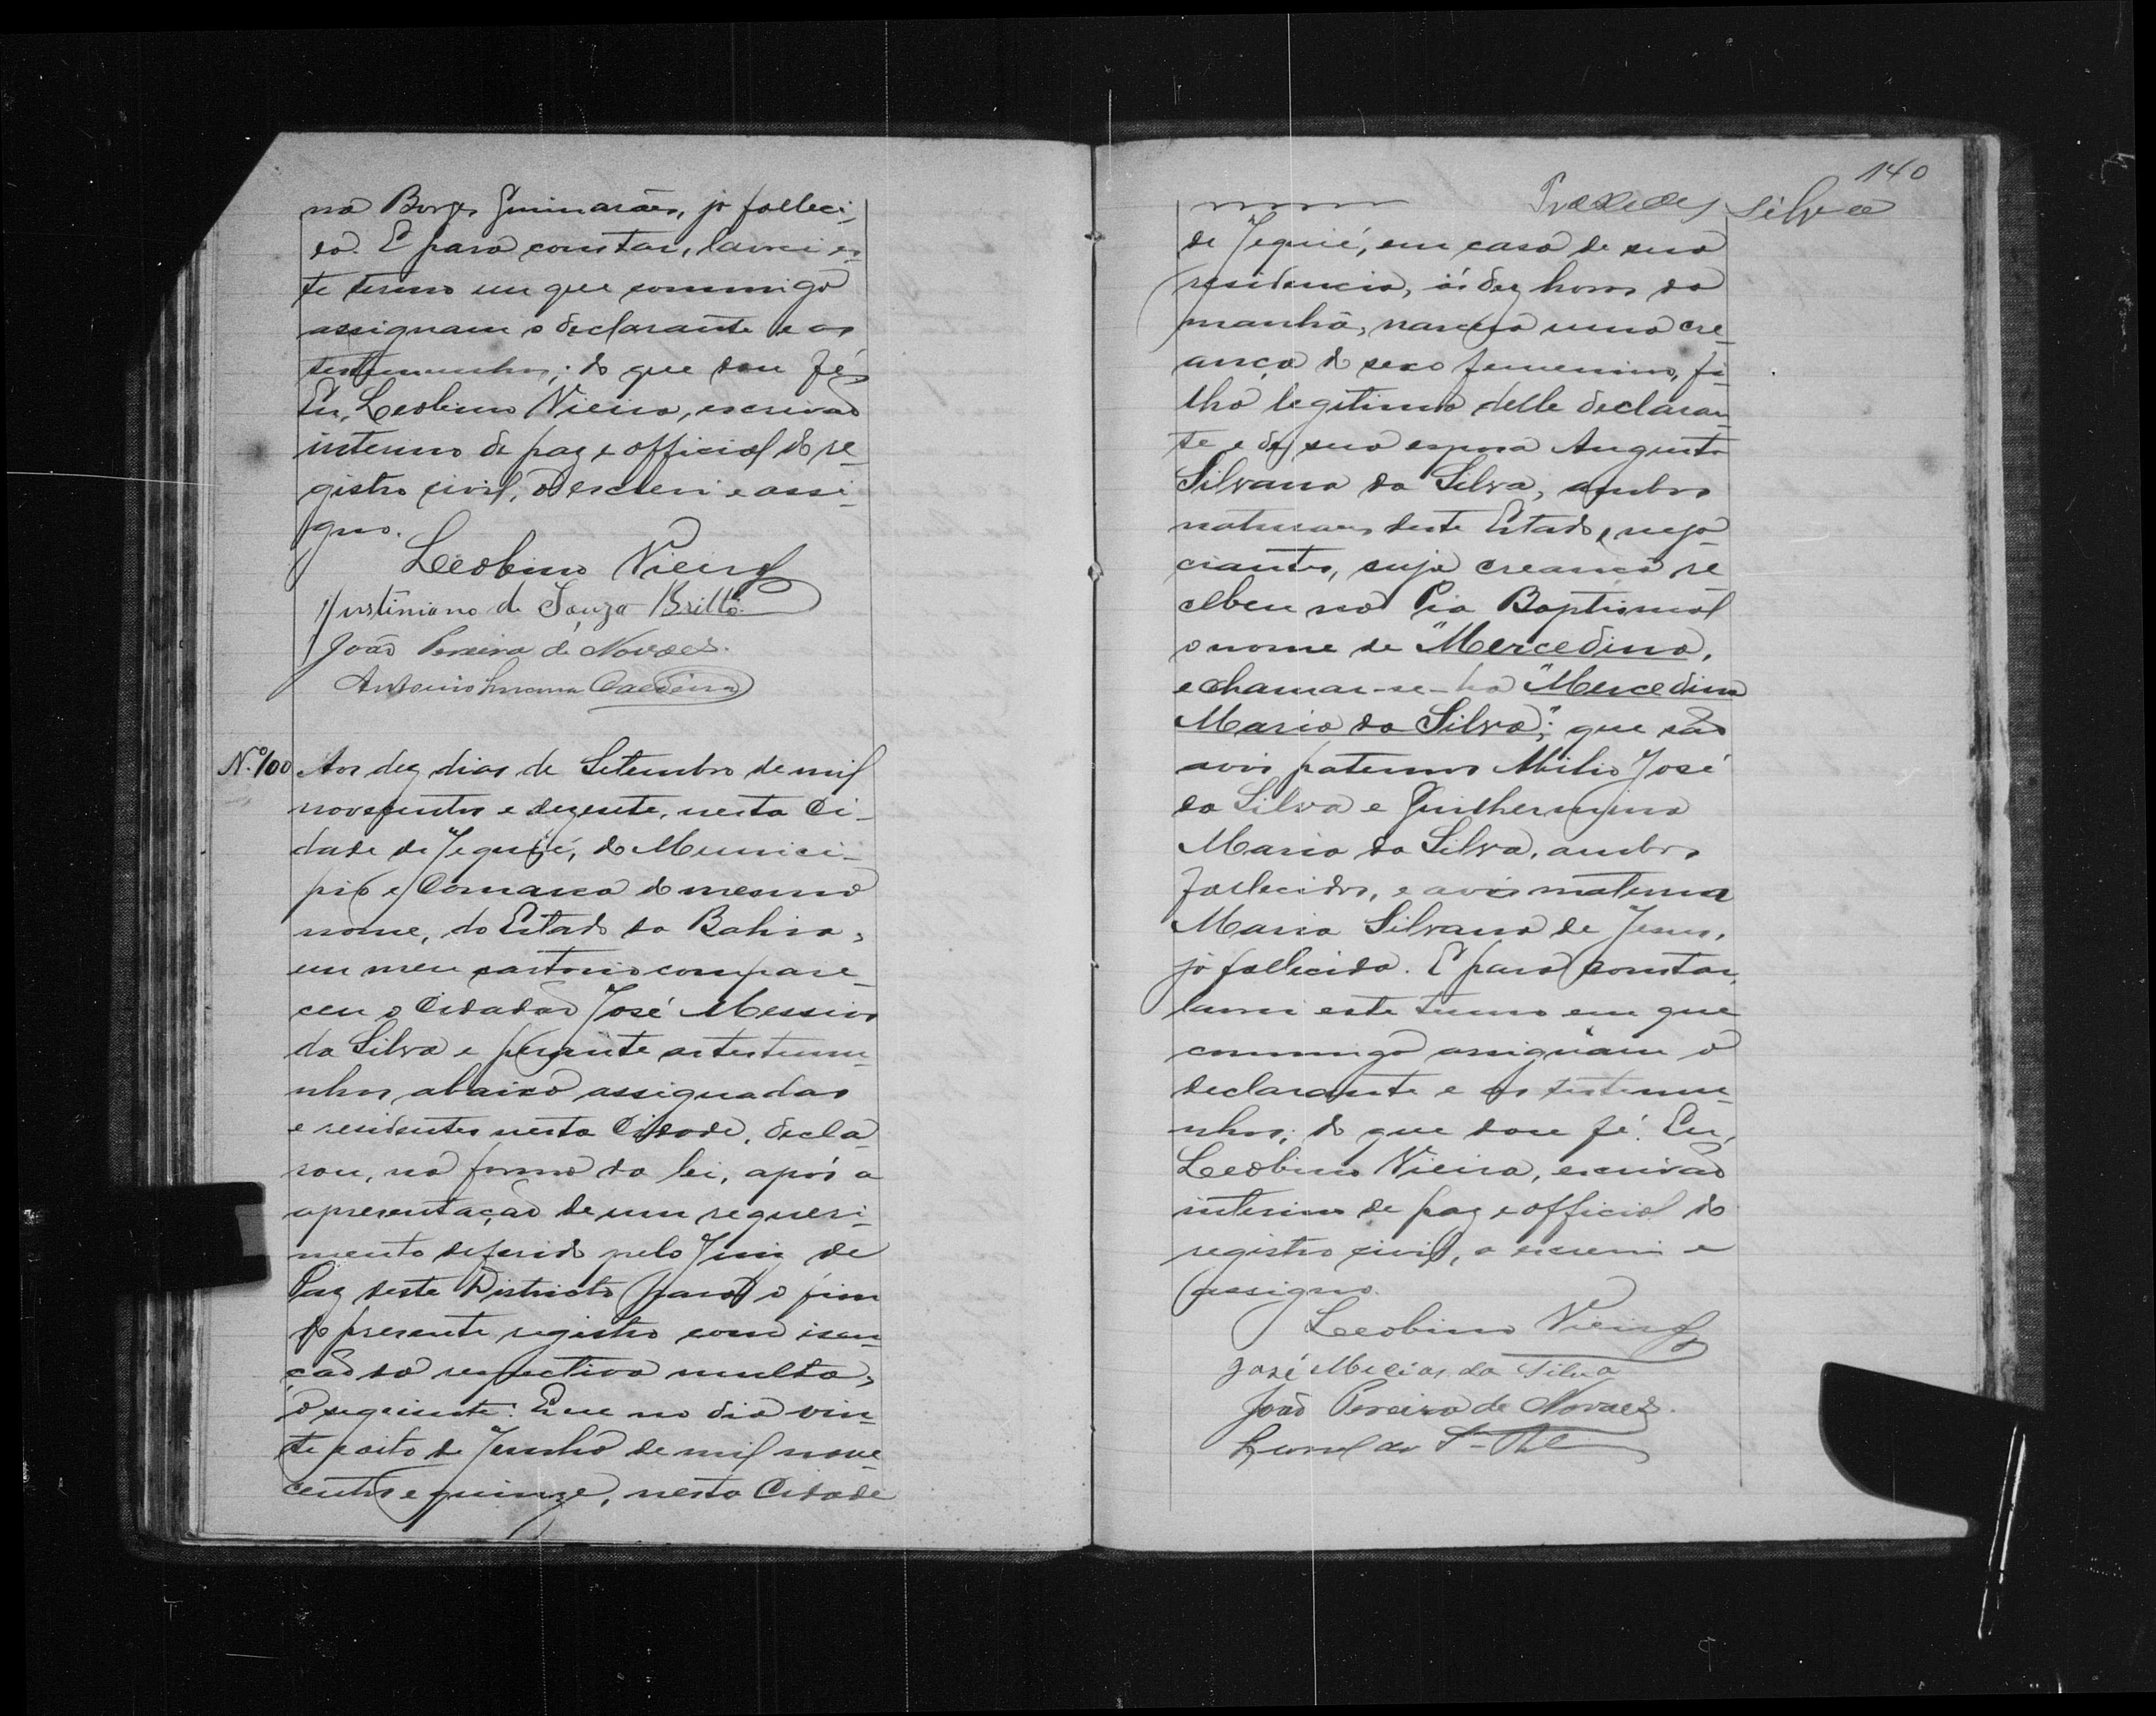 na Borges Guimarães, já falleci-
da. E para constar, lavrei es-
te termo em que commigo
assignam o declarante e as
testemunhas; do que dou fé.
Eu, Leobino Vieira, escrivão
interino de paz e official do re-
gistro civil, o escrevi e assi-
gno.
Leobino Vieira
Justiniano de Souza Britto
João Pereira de Novaes.
Antonio
Nº 100 Aos dez dias de Setembro de mil
novecentos e dezesete, nesta Ci-
dade de Jequié, do Munici-
pio e Comarca do mesmo
nome, do Estado da Bahia,
em meu cartorio compare-
ceu o Cidadão José Messias
da Silva e perante as testemu-
nhas abaixo assignadas
e residentes nesta Cidade, decla-
rou, na forma da lei, após a
apresentação de um requeri-
mento deferido pelo Juiz de
Paz deste Districto para o fim
do presente registro com isen-
ção da respectiva multa,
o seguinte: Que no dia vin-
te e oito de Junho de mil nove-
centos e quinze, nesta Cidade
140
Silva
de Jequié, em casa de sua
residencia, ás dez horas da
manhã, nasceu uma cre-
ança do sexo femenino, fi-
lha legitima delle declaran-
te e de sua esposa Augusta
Silvana da Silva, ambos
naturaes deste Estado, nego-
ciantes, cuja creança re
cebeu na Pia Baptismal
o nome de "Mercedina,
e chamar-se-ha "Mercedina
Maria da Silva"; que são
avós paternos Milio José
da Silva e Guilhermina
Maria da Silva, ambos
fallecidos, e avó materna
Maria Silvana de Jesus,
já fallecida. E para constar,
lavrei este termo em que
commigo assignam o
declarante e as testemu-
nhas; do que dou fé. Eu,
Leobino Vieira, escrivão
interino de paz e official do
registro civil, o escrevi e
assigno.
Leobino Vieira
José Mecias da Silva
João Pereira de Novaes.